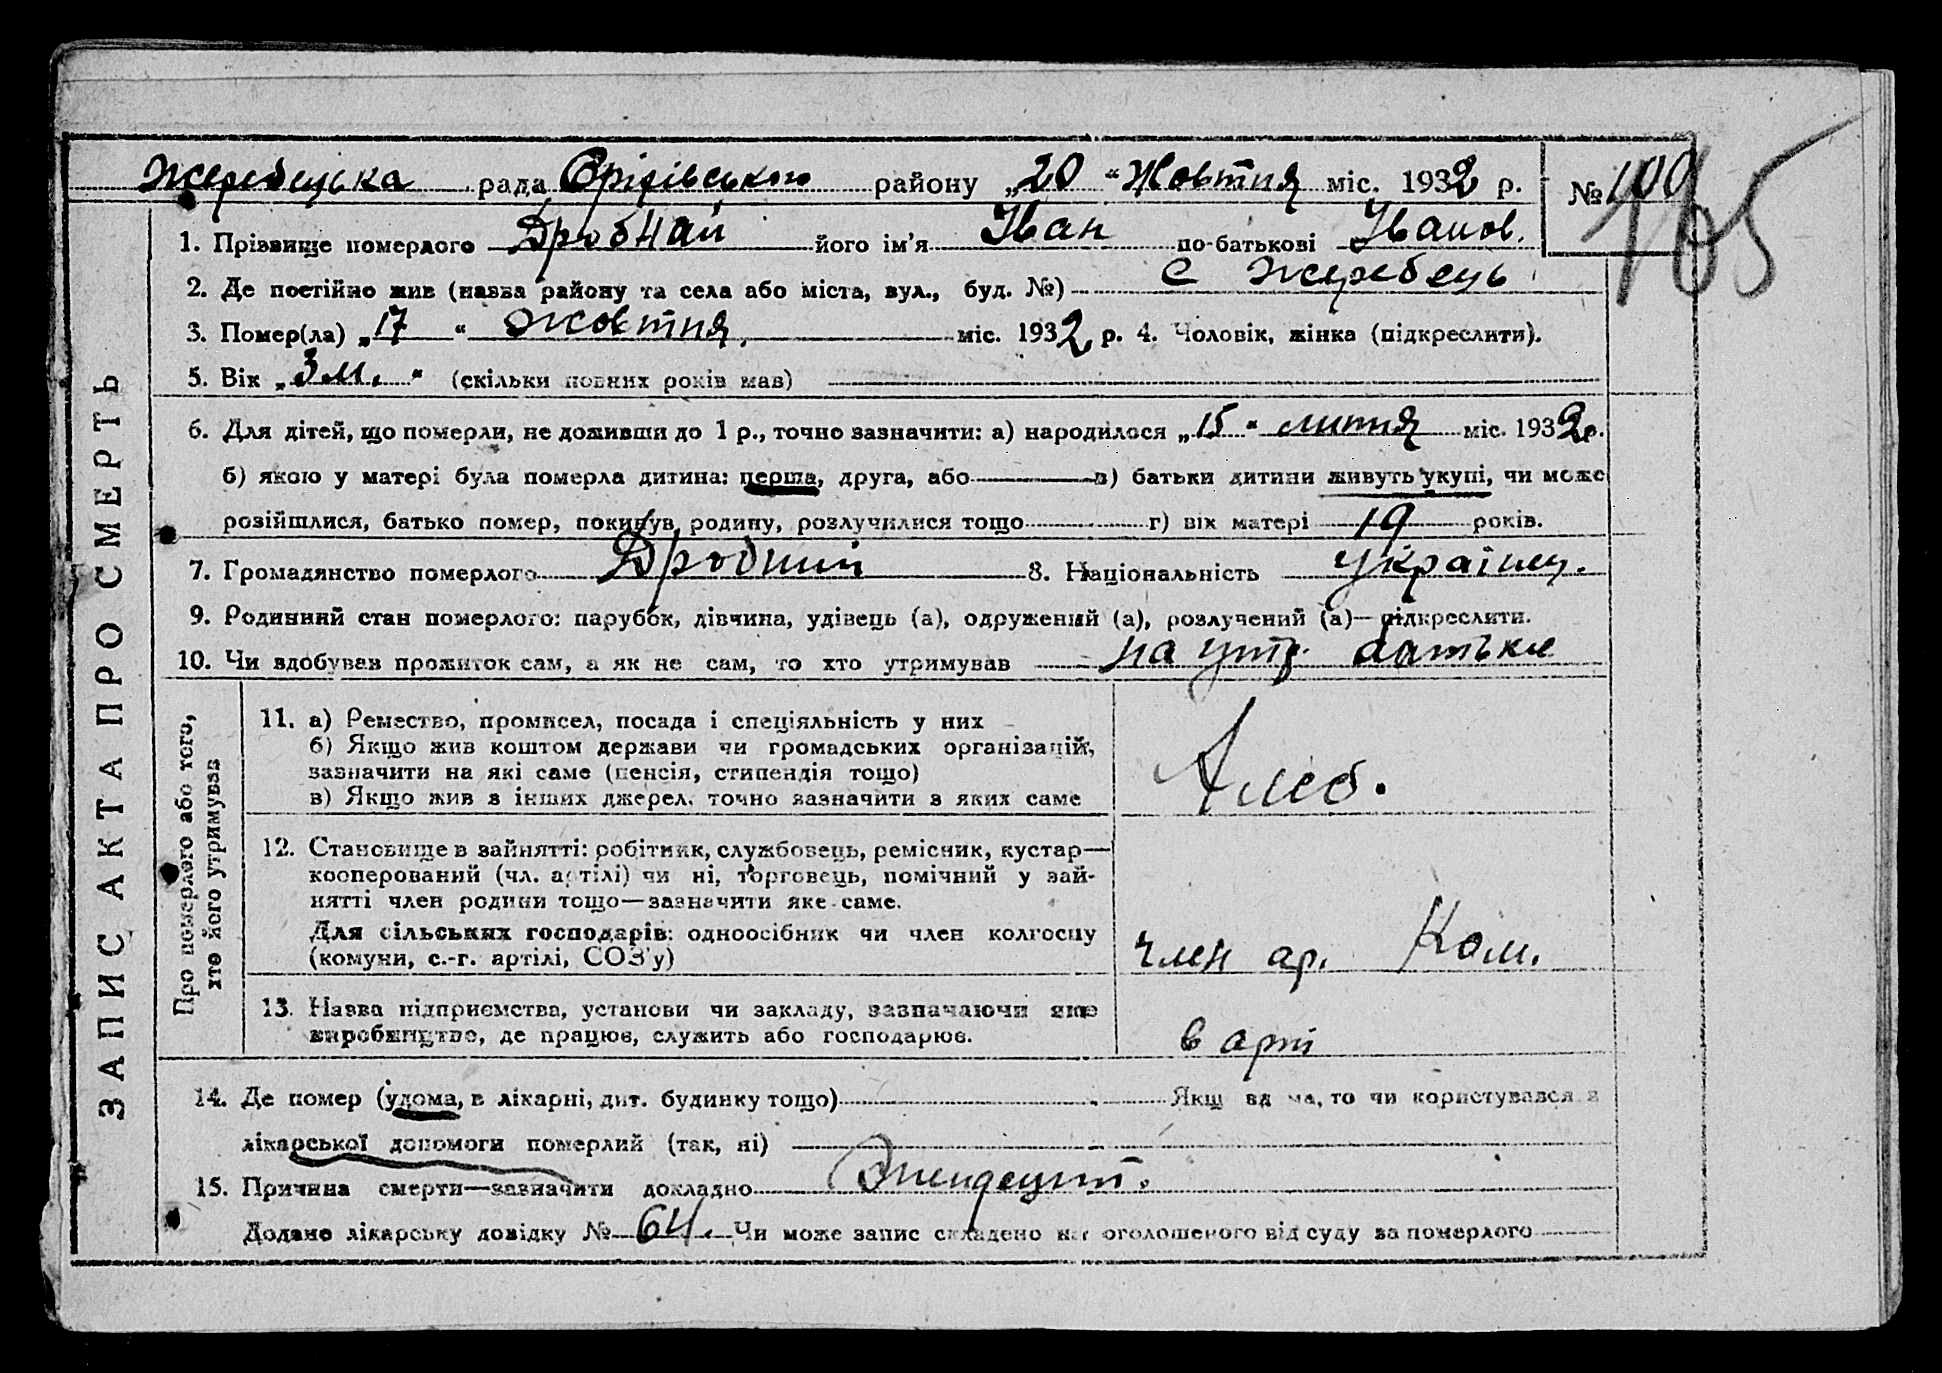 Жеребецька рада Оріхівського району „20“ Жовтня міс. 1932 р. № 100
165
1. Прізвище померлого Дробнай його ім’я Іван по-батькові Іванов.
2. Де постійно жив (назва району та села або міста, вул., буд. №) с Жеребець
3. Помер(ла) „17“ жовтня міс. 1932 р. 4. Чоловік, жінка (підкреслити).
5. Вік „3 м.“ (скільки повних років мав)
6. Для дітей, що померли, не доживши до 1 р., точно зазначити: а) народилося „15“ липня міс. 1932 р.
б) якою у матері була померла дитина: перша, друга, або в) батьки дитини живуть укупі, чи може
розійшлися, батько помер, покинув родину, розлучилися тощо г) вік матері 19 років.
7. Громадянство померлого 8. Національність україн.
9. Родинний стан померлого: парубок, дівчина, удівець (а), одружений (а), розлучений (а)—підкреслити.
10. Чи здобував прожиток сам, а як не сам, то хто утримував на утр. батька
ЗАПИС АКТА ПРО СМЕРТЬ
Про померлого або того,
хто його утримував
11. а) Ремество, промисел, посада і спеціяльність у них
б) Якщо жив коштом держави чи громадських організацій,
зазначити на які саме (пенсія, стипендія тощо)
в) Якщо жив з інших джерел, точно зазначити з яких саме
Хліб.
12. Становище в зайнятті: робітник, службовець, ремісник, кустар—
кооперований (чл. артілі) чи ні, торговець, помічний у зай-
нятті член родини тощо—зазначити яке саме.
Для сільських господарів: одноосібник чи член колгоспу
(комуни, с.-г. артілі, СОЗ’у)
член ар. Ком.
13. Назва підприємства, установи чи закладу, зазначаючи яке
виробництво, де працює, служить або господарює.
в арті
14. Де помер (удома, в лікарні, дит. будинку тощо) Якщ вд ма, то чи користувався з
лікарської допомоги померлий (так, ні)
15. Причина смерти—зазначити докладно
Додано лікарську довідку № 64. Чи може запис складено на оголошеного від суду за померлого